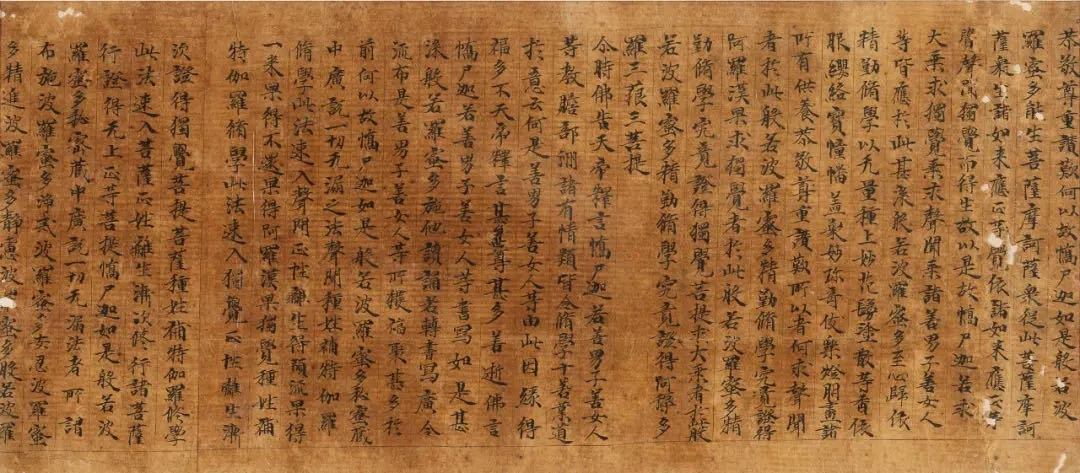 恭敬尊重讚歎何以故憍尸迦如是般若波
羅蜜多能生菩薩摩訶薩衆從此菩薩摩訶
薩衆生諸如来應正等覺依諸如来應正等
覺聲聞獨覺而得生故以是故憍尸迦若求
大乘求獨覺乘求聲聞乘諸善男子善女人
等皆應於此甚深般若波羅蜜多至心歸依
精勤脩學以无量種上妙花鬘塗散等香依
服纓絡寶幢幡蓋衆妙珎奇伎樂燈明盡諸
所有供養恭敬尊重讚歎所以者何求聲聞
者於此般若波羅蜜多精勤脩學究竟證得
阿羅漢果求獨覺者於此般若波羅蜜多精
勤脩學究竟證得獨覺菩提求大乘者於此般
若波羅蜜多精勤脩學究竟證得阿耨多
羅三藐三菩提
尒時佛告天帝釋言憍尸迦若善男子善女人
等教贍部洲諸有情類皆令脩學十善業道
於意云何是善男子善女人等由此因緣得
福多不天帝釋言甚尊甚多善逝佛言
憍尸迦若善男子善女人等書寫如是甚
深般若羅蜜多施他讀誦若轉書寫廣令
流布是善男子善女人等所獲福聚甚多於
前何以故憍尸迦如是般若波羅蜜多秘蜜藏
中廣說一切无漏之法聲聞種姓補特伽羅
脩學此法速入聲聞正性離生得預流果得
一来果得不還果得阿羅漢果獨覺種性補
特伽羅脩學此法速入獨覺正性離生漸
次證得獨覺菩提菩薩種姓補特伽羅脩學
此法速入菩薩正性離生漸次修行諸菩薩
行證得无上正等菩提憍尸迦如是般若波
羅蜜多秘密藏中廣說一切无漏法者所謂
布施波羅蜜多淨戒波羅蜜多安忍波羅蜜
多精進波羅蜜多靜慮波羅蜜多般若波羅